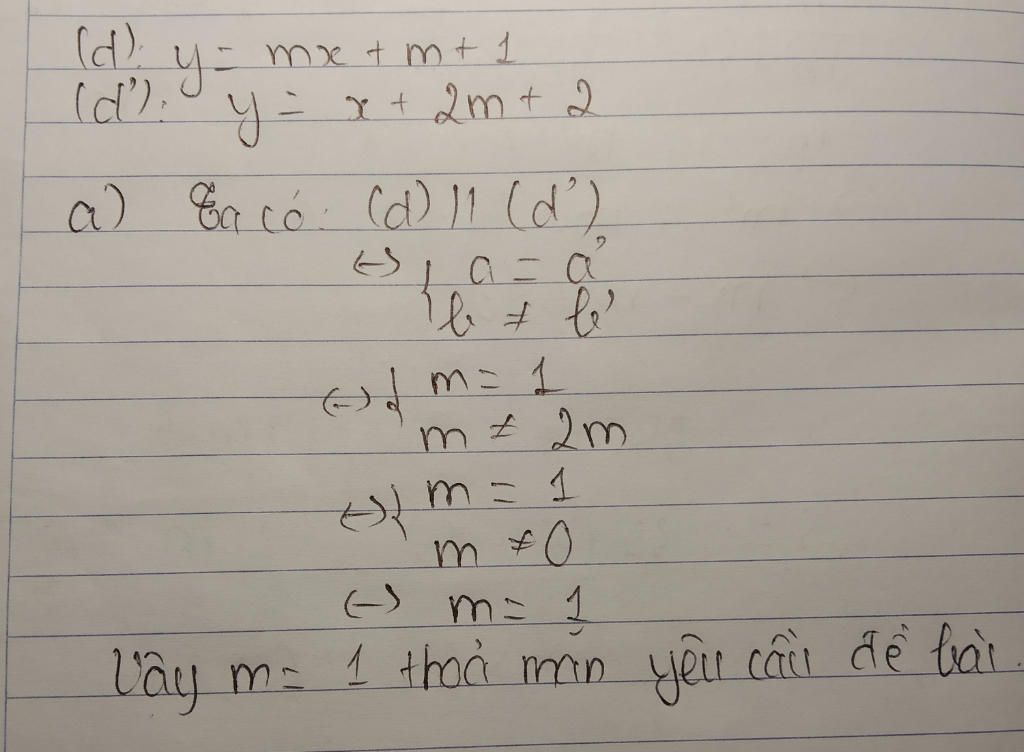 (d): y = mx + m + 1
(d'): y = x + 2m + 2
a) Ta có: (d) // (d')
↔ { a = a'
b ≠ b'
↔ { m = 1
m ≠ 2m
↔ { m = 1
m ≠ 0
↔ m = 1
Vậy m = 1 thoả mãn yêu cầu đề bài.